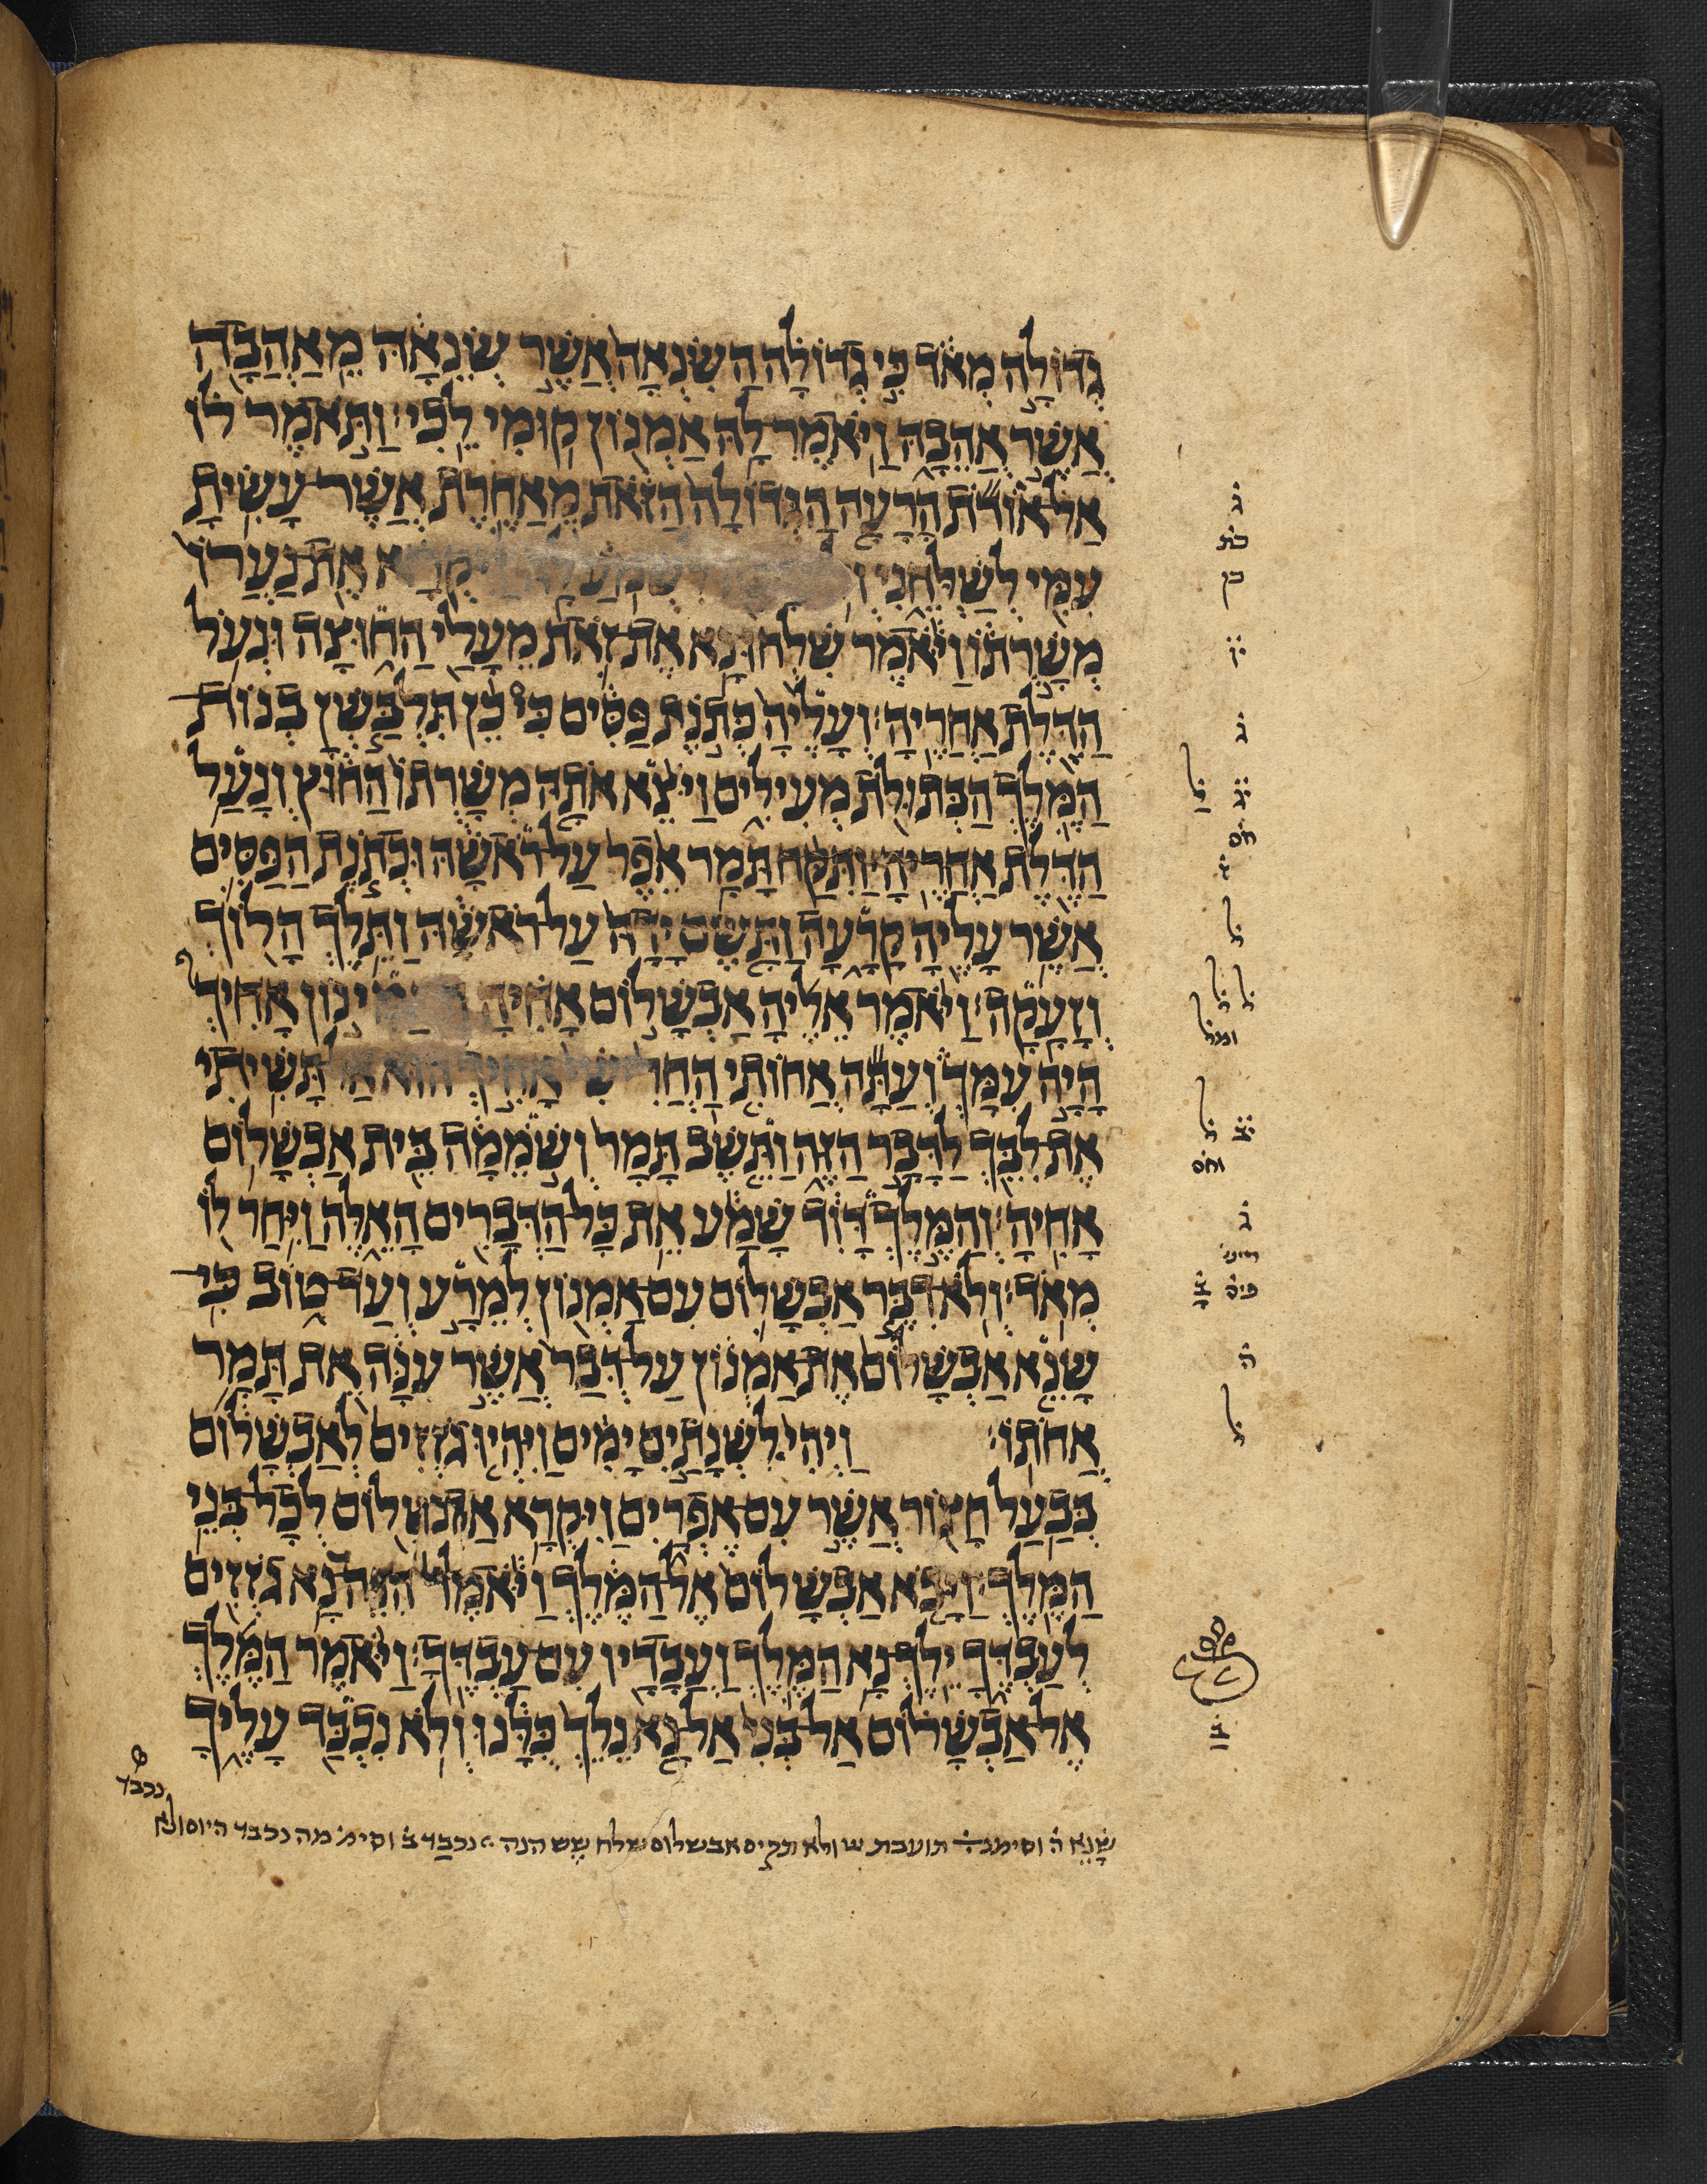 גְּדוֹלָה מְאֹד כִּי גְדוֹלָה הַשִּׂנְאָה אֲשֶׁר שְׂנֵאָהּ מֵאַהֲבָה
אֲשֶׁר אֲהֵבָהּ וַיֹּאמֶר לָהּ אַמְנוֹן קוּמִי לֵכִי׃ וַתֹּאמֶר לוֹ
אַל אוֹדֹת הָרָעָה הַגְּדוֹלָה הַזֹּאת מֵאַחֶרֶת אֲשֶׁר עָשִׂיתָ
עִמִּי לְשַׁלְּחֵנִי לִשְׁמֹעַ לָהּ וַיִּקְרָא אֶת נַעֲרוֹ
מְשָׁרְתוֹ וַיֹּאמֶר שִׁלְחוּ נָא אֶת זֹאת מֵעָלַי הַחוּצָה וּנְעֹל
הַדֶּלֶת אַחֲרֶיהָ׃ וְעָלֶיהָ כְּתֹנֶת פַּסִּים כִּי כֵן תִּלְבַּשְׁןָ בְנוֹת
הַמֶּלֶךְ הַבְּתוּלֹת מְעִילִים וַיֹּצֵא אֹתָהּ מְשָׁרְתוֹ הַחוּץ וְנָעַל
הַדֶּלֶת אַחֲרֶיהָ׃ וַתִּקַּח תָּמָר אֵפֶר עַל רֹאשָׁהּ וּכְתֹנֶת הַפַּסִּים
אֲשֶׁר עָלֶיהָ קָרָעָה וַתָּשֶׂם יָדָהּ עַל רֹאשָׁהּ וַתֵּלֶךְ הָלוֹךְ
וְזָעָקָה׃ וַיֹּאמֶר אֵלֶיהָ אַבְשָׁלוֹם אָחִיהָ הַאֲמִינוֹן אָחִיךְ
הָיָה עִמָּךְ וְעַתָּה אֲחוֹתִי הַחֲרִישִׁי אָחִיךְ הוּא אַל תָּשִׁיתִי
אֶת לִבֵּךְ לַדָּבָר הַזֶּה וַתֵּשֶׁב תָּמָר וְשֹׁמֵמָה בֵּית אַבְשָׁלוֹם
אָחִיהָ׃ וְהַמֶּלֶךְ דָּוִד שָׁמַע אֵת כָּל הַדְּבָרִים הָאֵלֶּה וַיִּחַר לוֹ
מְאֹד׃ וְלֹא דִבֶּר אַבְשָׁלוֹם עִם אַמְנוֹן לְמֵרָע וְעַד טוֹב כִּי
שָׂנֵא אַבְשָׁלוֹם אֶת אַמְנוֹן עַל דְּבַר אֲשֶׁר עִנָּה אֵת תָּמָר
אֲחֹתוֹ׃ וַיְהִי לִשְׁנָתַיִם יָמִים וַיִּהְיוּ גֹזְזִים לְאַבְשָׁלוֹם
בְּבַעַל חָצוֹר אֲשֶׁר עִם אֶפְרָיִם וַיִּקְרָא אַבְשָׁלוֹם לְכָל בְּנֵי
הַמֶּלֶךְ׃ וַיָּבֹא אַבְשָׁלוֹם אֶל הַמֶּלֶךְ וַיֹּאמֶר הִנֵּה נָא גֹזְזִים
לְעַבְדֶּךָ יֵלֶךְ נָא הַמֶּלֶךְ וַעֲבָדָיו עִם עַבְדֶּךָ׃ וַיֹּאמֶר הַמֶּלֶךְ
אֶל אַבְשָׁלוֹם אַל בְּנִי אַל נָא נֵלֵךְ כֻּלָּנוּ וְלֹא נִכְבַּד עָלֶיךָ
שָׂנֵא ה וסימנ תועבת ולא אבשלום שלח שש הנה נכבד ב וסימ מה נכבד היום ולא
נכבד